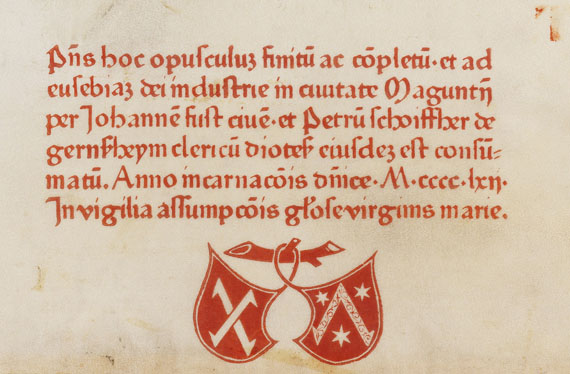 Pn̄s hoc opusculuʒ finitū ac cōpletū· et ad
eusebiaʒ dei industrie in ciuitate Maguntij
per Johannē fust ciuē· et Petrū schoiffher de
gernsʒheym clericū dioteſ eiusdeʒ est consū-
matū. Anno incarnacōis dn̄ice· M·cccc·lxij·
In vigilia assumpcōis gl̄ose virginis marie.